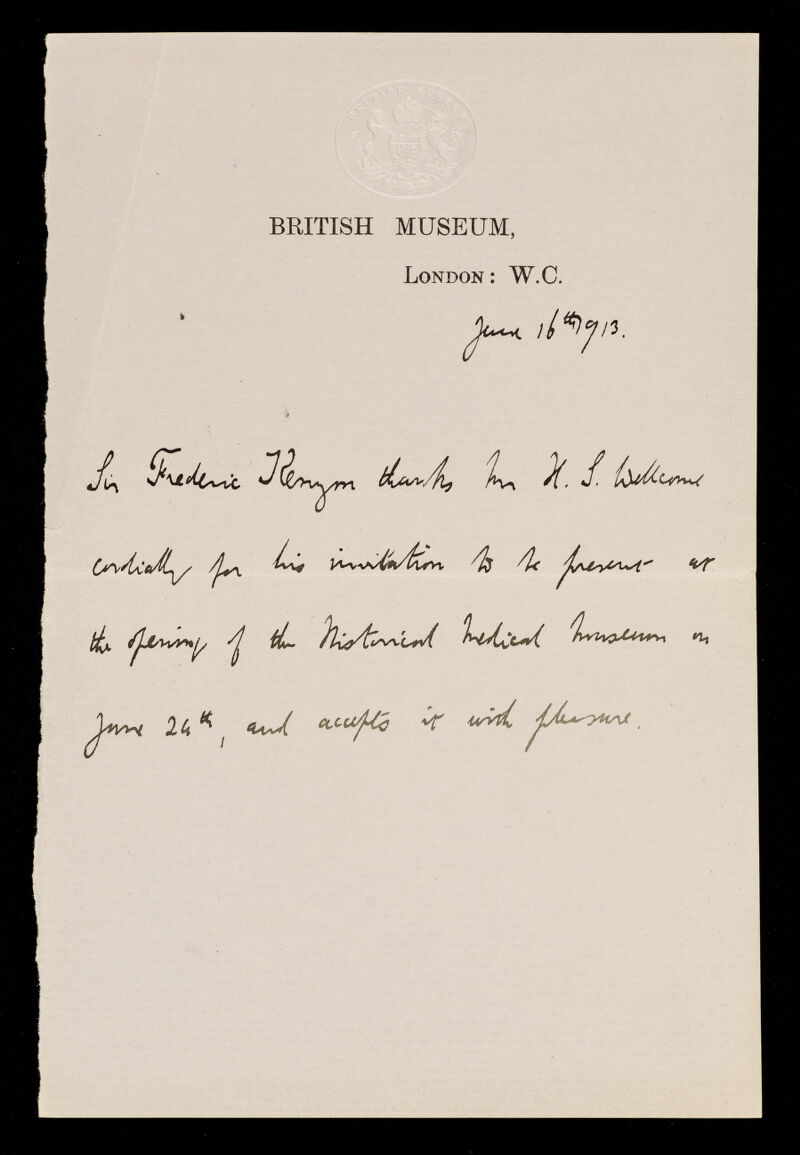 BRITISH MUSEUM
BRITISH MUSEUM,
LONDON: W.C.
June 16th 1913.
Sir Frederic Kenyon thanks Mr H. S. Wellcome
cordially for his invitation to be present at
the opening of the Historical Medical Museum on
June 24th, and accepts it with pleasure.